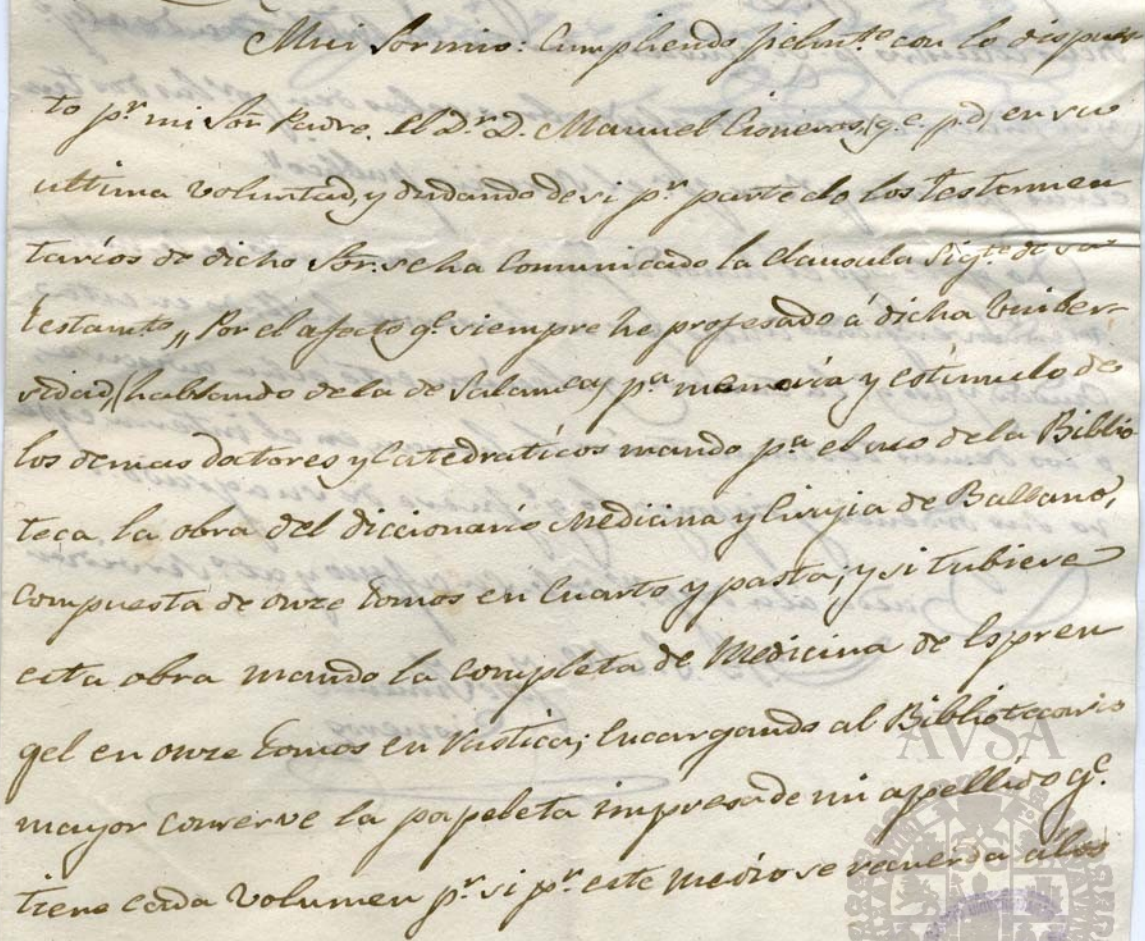 Mui Sor mio: Cumpliendo fielmte con lo dispues
to pr mi Sor Padre. El Dr. D. Manuel Cisneros, (q. e. p. d) en su
ultima voluntad, y dudando de si pr parte de los testamen
tarios de dicho Sor. se ha Comunicado la Clausula Sigte de su
testamto „ Por el afecto qe siempre he profesado á dicha Univer-
sidad, (hablando de la de Salamca) pa memoria y estimulo de
los demas dotores y Catedraticos mando pa el uso de la Biblio
teca la obra del diccionario Medicina y Cirujia de Ballano,
compuesta de onze tomos en Cuarto y pasta; y si tubiere
esta obra mando la completa de Medicina de Espren
gel en onze tomos en rustica; Encargando al Bibliotecario
mayor conserve la papeleta impresa de mi apellido qe.
tiene cada volumen pr. si pr. este medio se recuerda a los
AVSA